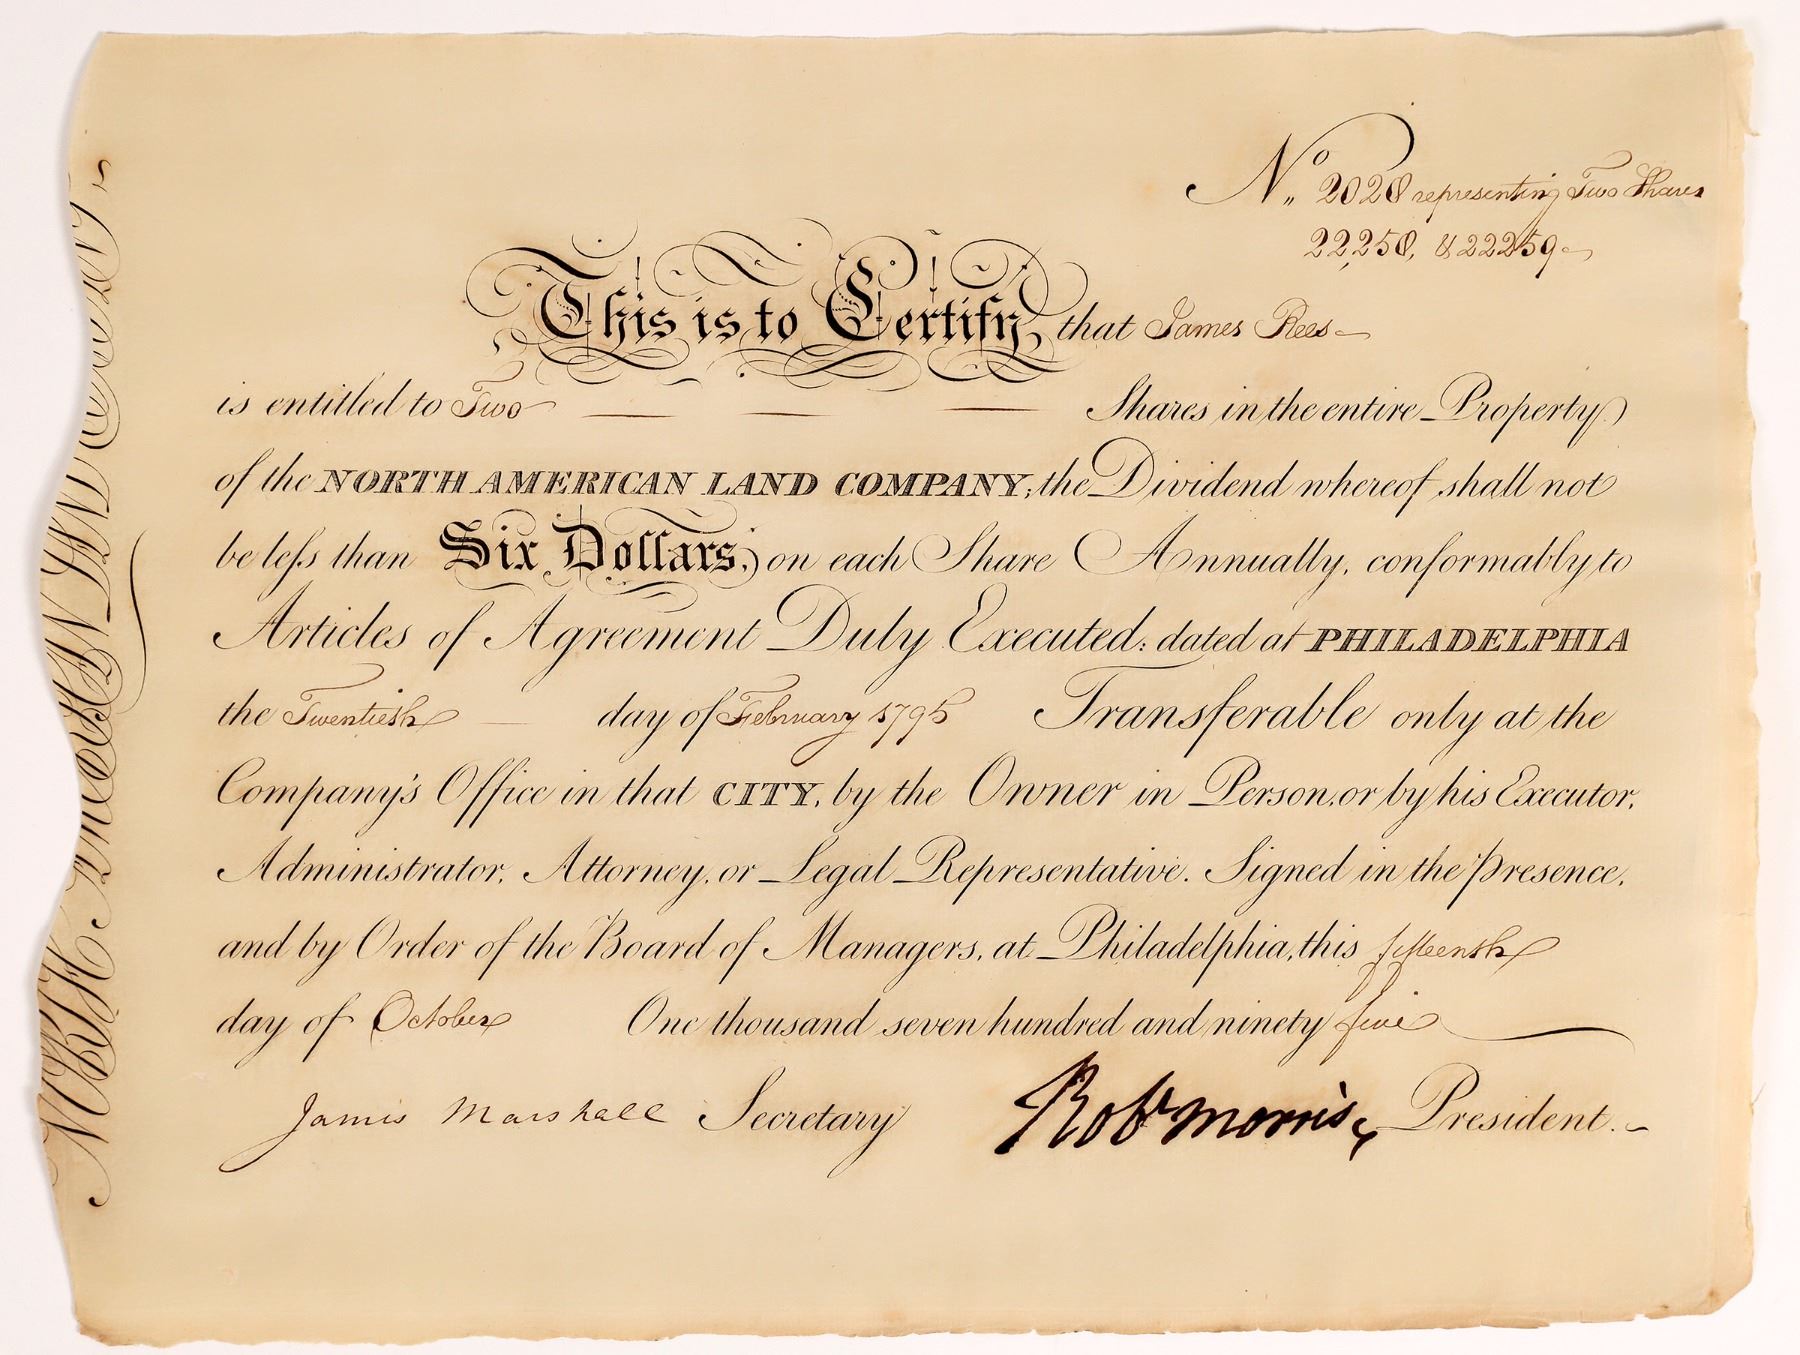 No. 2028 representing Two Shares
22,258, & 22259
This is to Certify, that James Rees
is entitled to Two Shares in the entire Property
of the NORTH AMERICAN LAND COMPANY; the Dividend whereof shall not
be leſs than Six Dollars, on each Share Annually, conformably to
Articles of Agreement Duly Executed: dated at PHILADELPHIA
the Twentieth day of February 1795 Transferable only at the
Company's Office in that CITY, by the Owner in Person, or by his Executor,
Administrator, Attorney, or Legal Representative. Signed in the Presence,
and by Order of the Board of Managers, at Philadelphia, this fifteenth
day of October One thousand seven hundred and ninety five
James Marshall Secretary Robt Morris President.
NORTH AMERICAN LAND